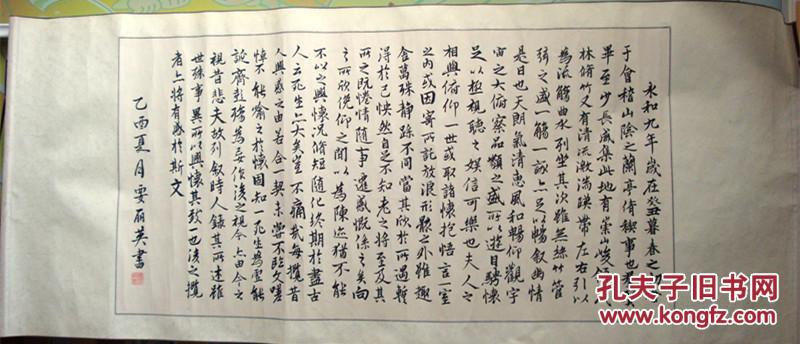 永和九年歲在癸暮春之
于會稽山陰之蘭亭脩禊事也
畢至少長咸集此地有崇山峻
林脩竹又有清流激湍暎帶左右引以
為流觴曲水列坐其次雖無絲竹管
弦之盛一觴一詠亦足以暢叙幽情
是日也天朗氣清惠風和暢仰觀宇
宙之大俯察品類之盛所以遊目騁懷
足以極視聽之娛信可樂也夫人之
相與俯仰一世或取諸懷抱悟言一室
之內或因寄所託放浪形骸之外雖趣
舍萬殊靜躁不同當其欣於所遇暫
得於己怏然自足不知老之將至及其
所之既惓情隨事遷感慨係之矣向
之所欣俛仰之間以為陳迹猶不能
不以之興懷況脩短隨化終期於盡古
人云死生亦大矣豈不痛哉每攬昔
人興感之由若合一契未嘗不臨文嗟
悼不能喻之於懷固知一死生為虛
誕齊彭殤為妄作後之視今亦由今之
視昔悲夫故列叙時人錄其所述雖
世殊事異所以興懷其致一也後之攬
者亦將有感於斯文
乙酉夏月 丽英書
孔夫子旧书网
www.kongfz.com